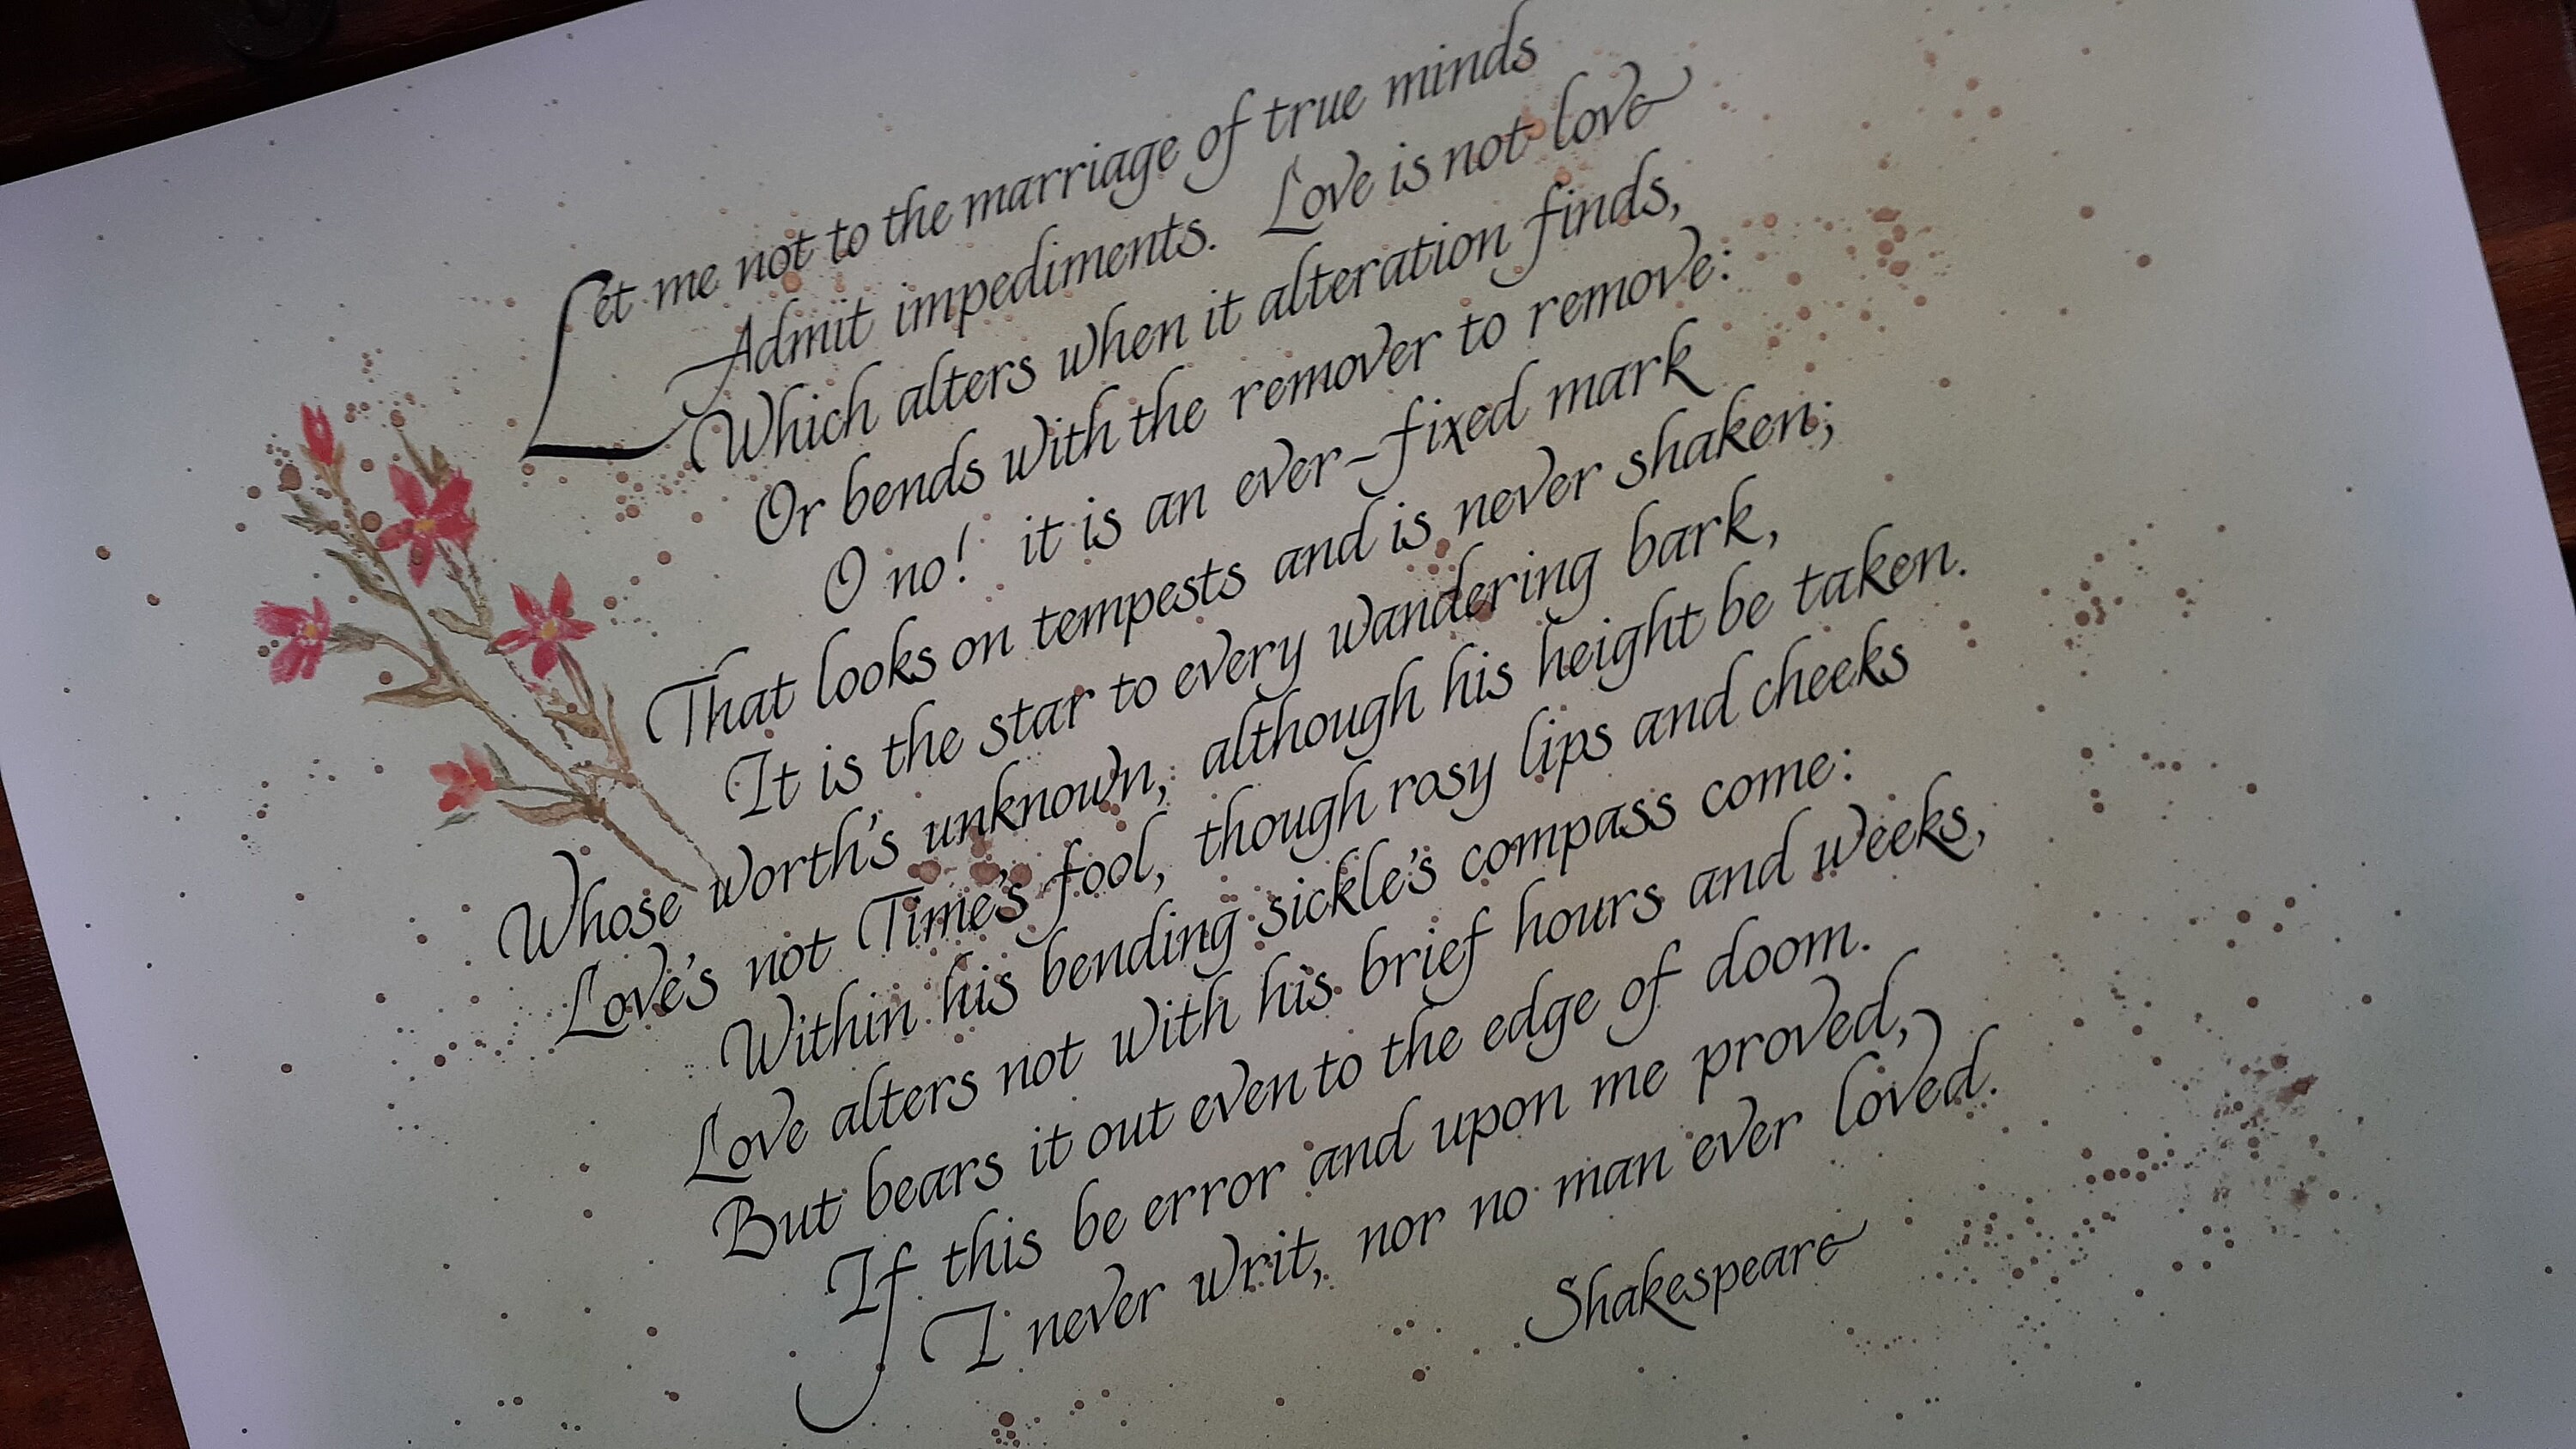 Let me not to the marriage of true minds
Admit impediments. Love is not love
Which alters when it alteration finds,
Or bends with the remover to remove:
O no! it is an ever-fixed mark
That looks on tempests and is never shaken;
It is the star to every wandering bark,
Whose worth's unknown, although his height be taken.
Love's not Time's fool, though rosy lips and cheeks
Within his bending sickle's compass come:
Love alters not with his brief hours and weeks,
But bears it out even to the edge of doom.
If this be error and upon me proved,
I never writ, nor no man ever loved.
Shakespeare